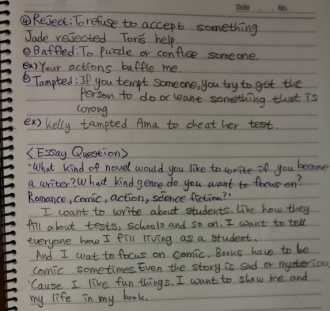 Date No.
④Reject: To refuse to accept something
Jade rejected Tore help.
⑤Baffled: To puzzle or confuse someone.
ex) Your actions baffle me.
⑥Tampted: If you tempt someone, you try to get the
person to do or want something that is
wrong
ex) Kelly tampted Ama to cheat her test
<Essay Question>
"What kind of novel would you like to write if you become
a writer? What kind genre do you want to focus on?
Romance, comic, action, science fiction?"
I want to write about students. Like how they
fill about tests, schools and so on. I want to tell
everyone how I fill living as a student.
And I wat to focus on comic. Books have to be
comic sometimes. Even the story is sad or mysterious
'Cause I like fun things. I want to show me and
my life in my book.